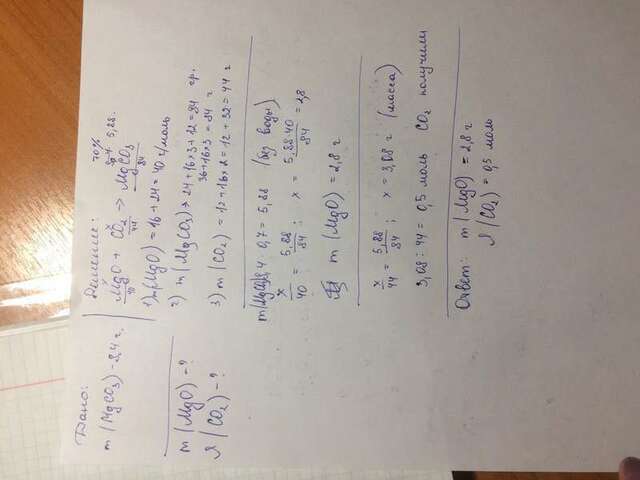 Дано:
m(MgCO₃) - 8,4 г.
m(MgO) - ?
(CO₂) - ?
Решение:
70%
8,4 5,88.
MgO + CO₂ => MgCO₃
40 44 84
1) m(MgO) = 16 + 24 = 40 г/моль
2) m(MgCO₃) => 24 + 16 × 3 + 12 = 84 гр.
36 + 16 × 3 = 84 г
3) m(CO₂) = 12 + 16 × 2 = 12 + 32 = 44 г
m(MgCO₃) 8,4 · 0,7 = 5,88 (без воды)
x/40 = 5,88/84 ; x = 5,88 · 40/84 = 2,8
m(MgO) = 2,8 г
x/44 = 5,88/84 ; x = 3,08 г (масса)
3,08 ÷ 44 = 0,5 моль CO₂ получили
Ответ: m(MgO) = 2,8 г
(CO₂) = 0,5 моль